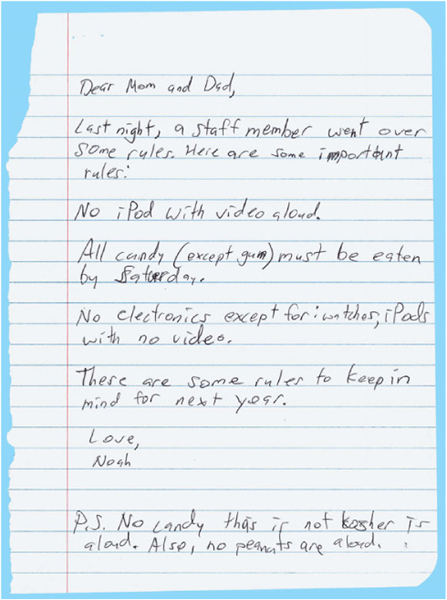 Dear Mom and Dad,
Last night, a staff member went over
some rules. Here are some important
rules:
No iPod with video aloud.
All candy (except gum) must be eaten
by Saturday.
No electronics except for: watches, iPods
with no video.
These are some rules to keep in
mind for next year.
Love,
Noah
P.S. No candy this is not kosher is
aloud. Also, no peanuts are aloud.